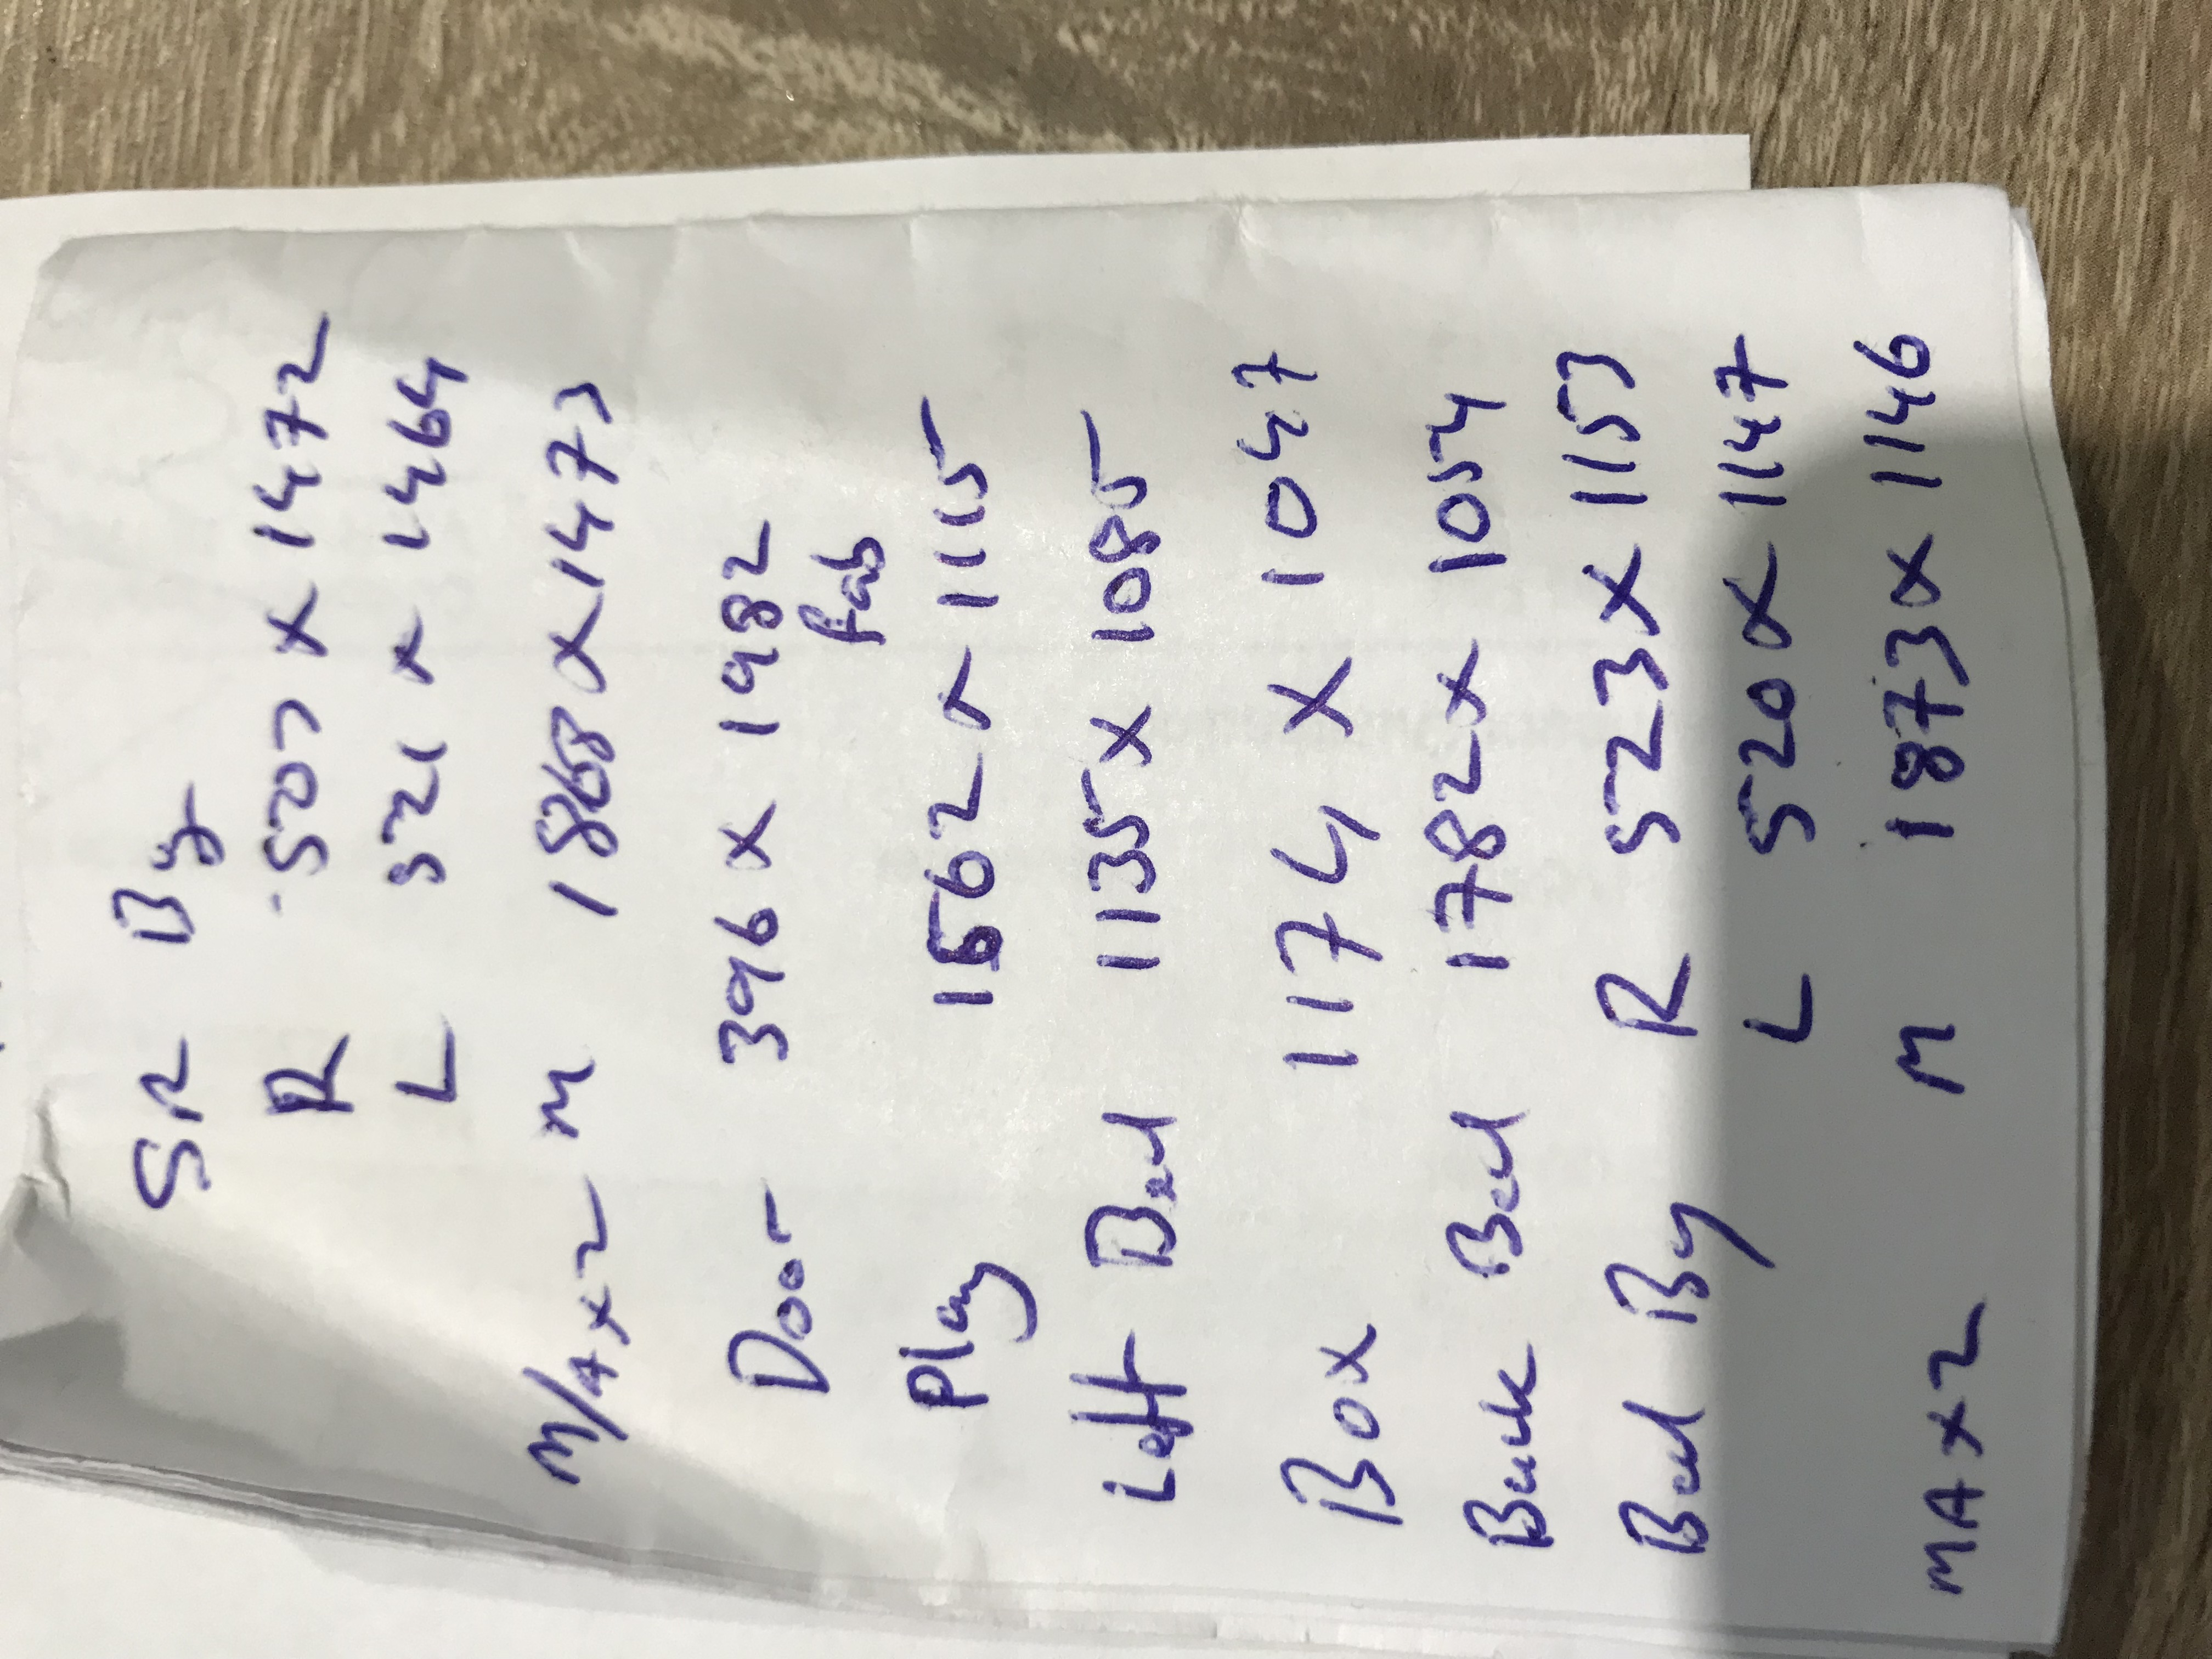 SR By
R 507 x 1472
L 521 x 1464
M/Ax2 M 1868 x 1473
Door 396 x 1982
fab
Play 1562 x 1115
Left Bed 1135 x 1085
Box 1174 x 1047
Back Bed 1782 x 1054
Bed By R 523 x 1153
L 520 x 1147
MAx2 M 1873 x 1146